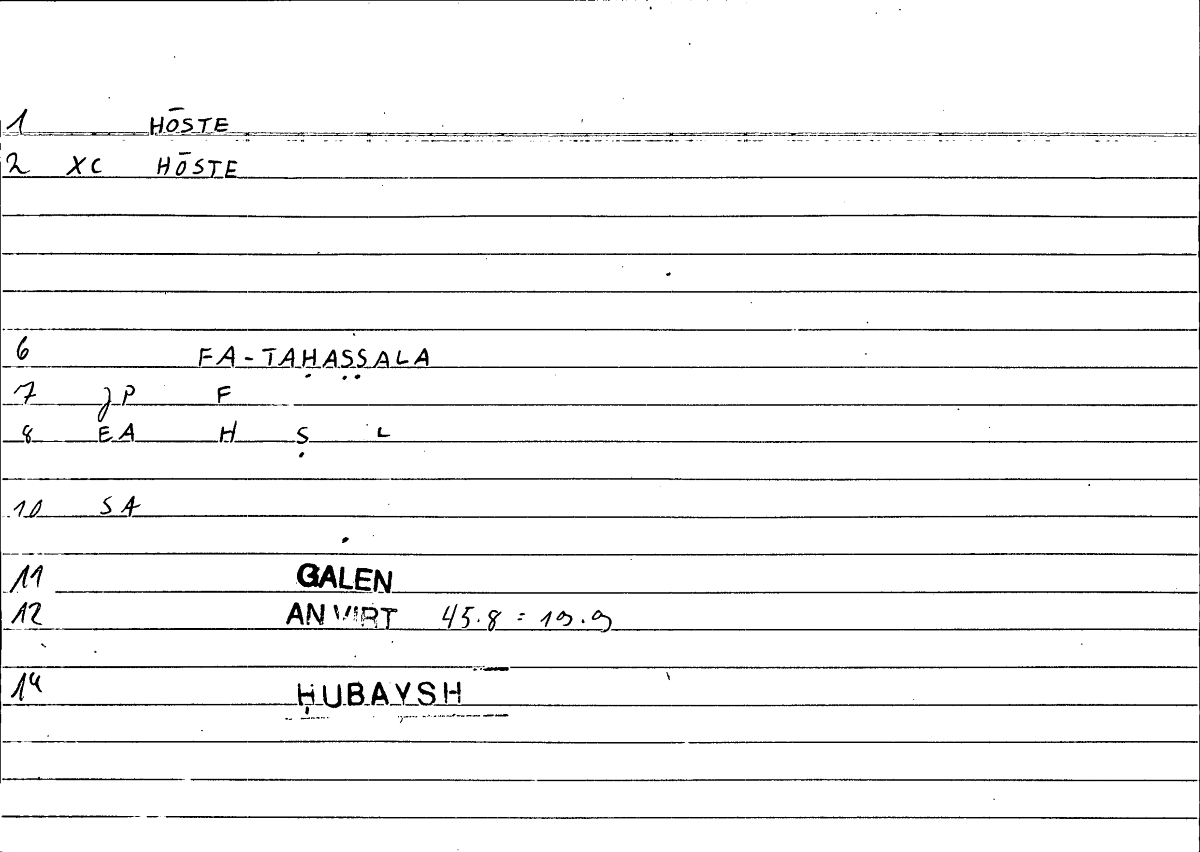 1 HŌSTE
2 XC HŌSTE
6 FA-TAḤAṢṢALA
7 JP F
8 EA H Ṣ L
10 SA
11 GALEN
12 AN VIRT 45.8 = 19.9
14 ḤUBAYSH